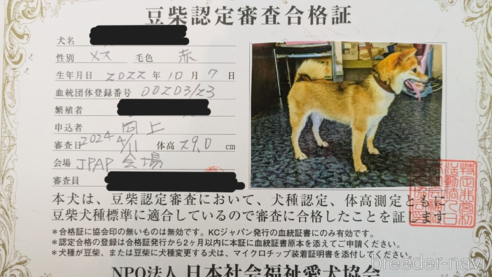 豆柴認定審査合格証
犬名
性別 メス 毛色 赤
生年月日 2022年10月7日
血統団体登録番号 00203/23
繁殖者
申込者 同上
審査日 2024 4/11 体高 29.0 cm
会場 JPAP会場
審査員
本犬は、豆柴認定審査において、犬種認定、体高測定ともに
豆柴犬種標準に適合しているので審査に合格したことを証します
*合格証に協会印の無いものは無効です。KCジャパン発行の血統証書にのみ有効です。
*認定合格の登録は合格証発行から2ヶ月以内に本証に血統証書原本を添えてご申請ください。
*犬種が豆柴、または豆柴に犬種変更する犬は、マイクロチップ装着証明書を添付してください。
NPO法人 日本社会福祉愛犬協会
breeder-navi